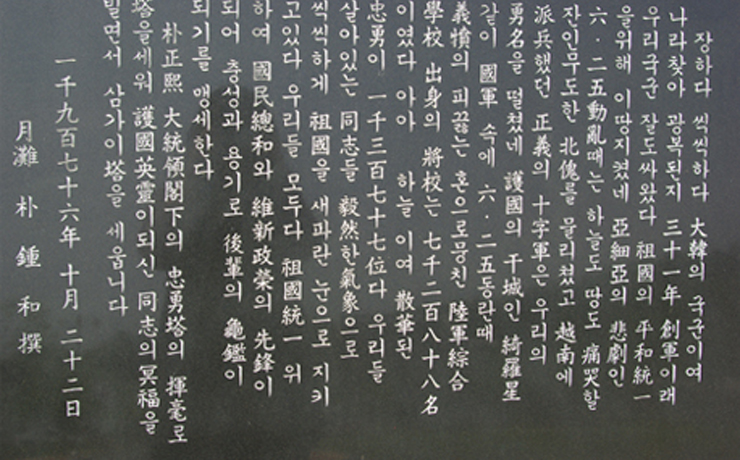 장하다 씩씩하다 大韓의 국군이여
나라찾아 광복된지 三十一年 創軍이래
우리국군 잘도싸왔다 祖國의 平和統一
을위해 이땅지켰네 亞細亞의 悲劇인
六·二五動亂때는 하늘도 땅도 痛哭할
잔인무도한 北傀를 물리쳤고 越南에
派兵했던 正義의 十字軍은 우리의
勇名을 떨쳤네 護國의 干城인 綺羅星
같이 國軍 속에 六·二五동란때
義憤의 피끓는 혼으로뭉친 陸軍綜合
學校 出身의 將校는 七千二百八十八名
이였다 아아 하늘이여 散華된
忠勇이 一千三百七十七位다 우리들
살아있는 同志들 毅然한氣象으로
씩씩하게 祖國을 새파란 눈으로 지키
고있다 우리들 모두다 祖國統一 위
하여 國民總和와 維新政榮의 先鋒이
되어 충성과 용기로 後輩의 龜鑑이
되기를 맹세한다
朴正熙 大統領閣下의 忠勇塔의 揮毫로
塔을세워 護國英靈이되신 同志의冥福을
빌면서 삼가이塔을 세웁니다
一千九百七十六年 十月 二十二日
月灘 朴鍾和 撰